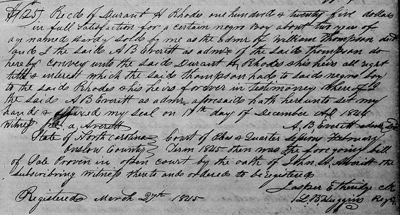 $125 Recd of Durant H Rhodes one hundred & twenty five dollars
in full satisfaction for a certain negro boy about two years of
age named sold by me as the admr of William Thompson decd
and I the said A B Everitt as admr of the said Thompson do
hereby convey unto the said Durant H Rhodes & his heirs all right
title & interest which the said Thompson had to said negro boy
to the said Rhodes & his heirs forever in testimony whereof I
the said A B Everitt as admr aforesaid hath here unto set my
hand & seal on 17th day of December AD 1844
Witness A B Everitt admr
State of North Carolina Court of Pleas & Quarter Sessions
Onslow County Term 1845 then was the foregoing bill
of Sale Proven in open court by the oath of John
subscribing Witness thereto and ordered to be registered
Jasper Etheridge clk
Registered March 27th 1845 Huggins Regr